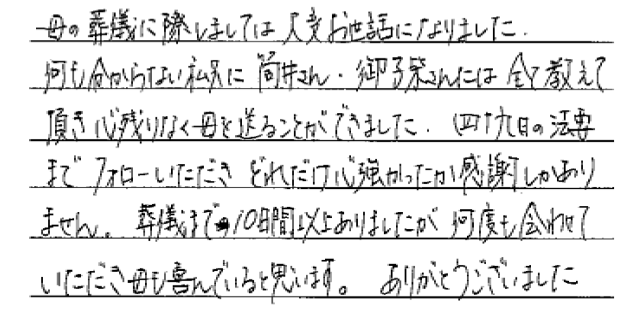 母の葬儀に際しましては大変お世話になりました.
何も分からない私共に筒井さん・御子柴さんには全て教えて
頂き心残りなく母を送ることができました. 四十九日の法要
まで フォローいただき どれだけ心強かったか感謝しかあり
ません。 葬儀まで10日間以上ありましたが 何度も会わせて
いただき母も喜んでいると思います。 ありがとうございました